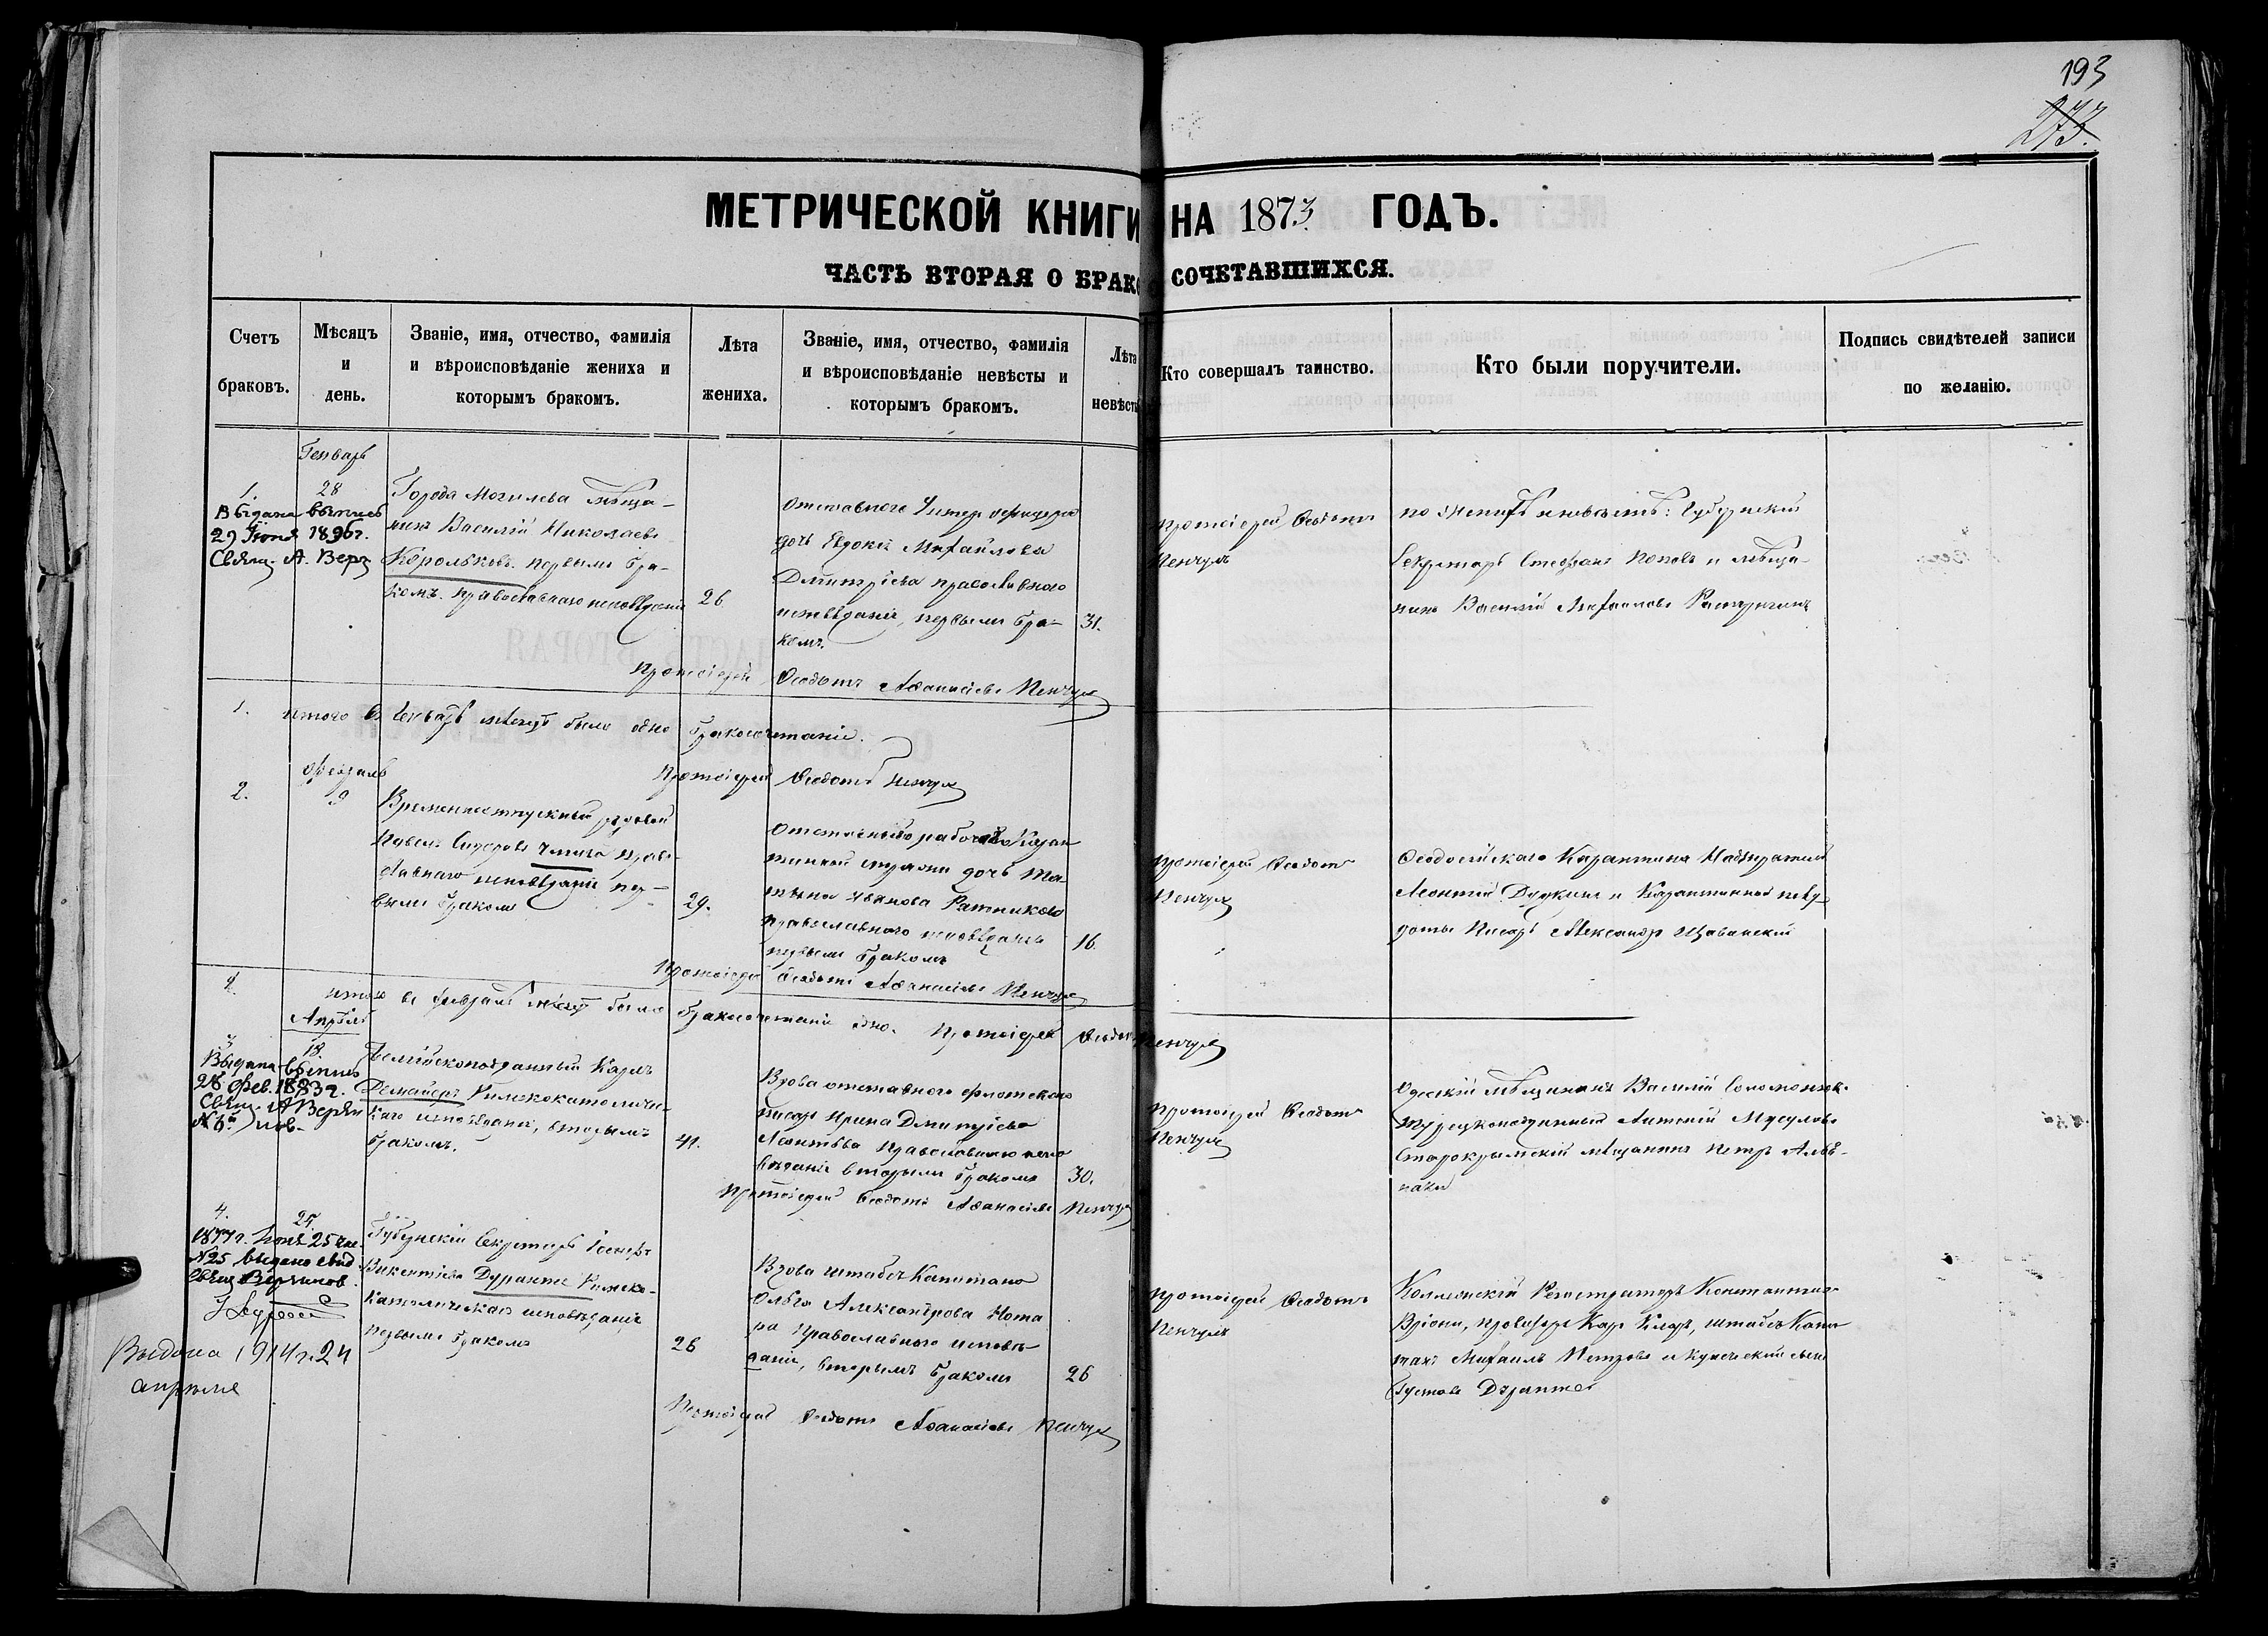 193
273.
МЕТРИЧЕСКОЙ КНИГИ НА 1873 ГОДЪ.
ЧАСТЬ ВТОРАЯ О БРАКО СОЧЕТАВШИХСЯ.
Счетъ браковъ.
Мѣсяцъ и день.
Званіе, имя, отчество, фамилія и вѣроисповѣданіе жениха и которымъ бракомъ.
Лѣта жениха.
Званіе, имя, отчество, фамилія и вѣроисповѣданіе невѣсты и которымъ бракомъ.
Лѣта невѣсты
Кто совершалъ таинство.
Кто были поручители.
Подпись свидѣтелей записи по желанію.
Генварь
1.
28
Выдана выпись
29 Іюня 1896г.
Свящ. А. Вер
Города Могилева мѣща-
нинъ Василій Николаевъ
Корольковъ. первымъ бра-
комъ. православнаго исповѣданія
26
отставнаго Унтеръ офицера
дочь Евдокія Михайлова
Дмитріева православнаго
исповѣданія, первымъ бра-
комъ.
31.
Протоіерей Ѳеодотъ
Пенчулъ
по женихѣ и невѣстѣ: Губернскій
Секретарь Стефанъ Поповъ и мѣща-
нинъ Василій Михаиловъ
Протоіерей Ѳеодотъ Аѳанасіевъ Пенчулъ
1. итого въ Генварѣ мѣсяцѣ было одно бракосочетаніе.
Протоіерей Ѳеодотъ Пенчулъ
Февраль
2.
9
Временноотпускной рядовой
Павелъ Сидоровъ право-
славнаго исповѣданія пер-
вымъ бракомъ
29.
отставнаго Каран-
тинной стражи дочь Та-
тьяна Иванова Ратникова
православнаго исповѣданія
первымъ бракомъ
16.
Протоіерей Ѳеодотъ
Пенчулъ
Ѳеодосійскаго Карантина Надзиратель
Леонтій и Карантинный
писарь Александръ
Протоіерей Ѳеодотъ Аѳанасіевъ Пенчулъ
итого въ февралѣ мѣсяцѣ было бракосочетаніе одно. Протоіерей Ѳеодотъ Пенчулъ
Апрѣль
18.
Выдана выпись
28 Фев. 1883г.
Свящ. А Верги
нов.
Бельгійскоподданный Карлъ
Демайеръ Римскокатоличе-
каго исповѣданія, вторымъ
бракомъ.
41.
Вдова отставнаго флотскаго
писаря Ирина Дмитріева
Леонтьева Православнаго испо
вѣданія вторымъ бракомъ
30.
Протоіерей Ѳеодотъ
Пенчулъ
Одесскій мѣщанинъ Василій
Турецкоподданный Антоній
Старокрымскій мѣщанинъ Петръ
Протоіерей Ѳеодотъ Аѳанасіевъ Пенчулъ
4.
25.
1877г. 25
№25 выдано свид
Свящ Вергинов
Губернскій Секретарь
Викентіевъ Дуранте Римско-
Католическаго исповѣданія
первымъ бракомъ
26
Вдова штабсъ Капитана
Ольга Александрова
Православнаго исповѣ-
данія, вторымъ бракомъ
26
Протоіерей Ѳеодотъ
Пенчулъ
Коллежскій Регистраторъ Константинъ
провизоръ Карлъ штабсъ Капи
танъ Михаилъ Петровъ и Купеческій сынъ
Густавъ Дуранте
Выдана 1914г. 24
апреля
Протоіерей Ѳеодотъ Аѳанасіевъ Пенчулъ